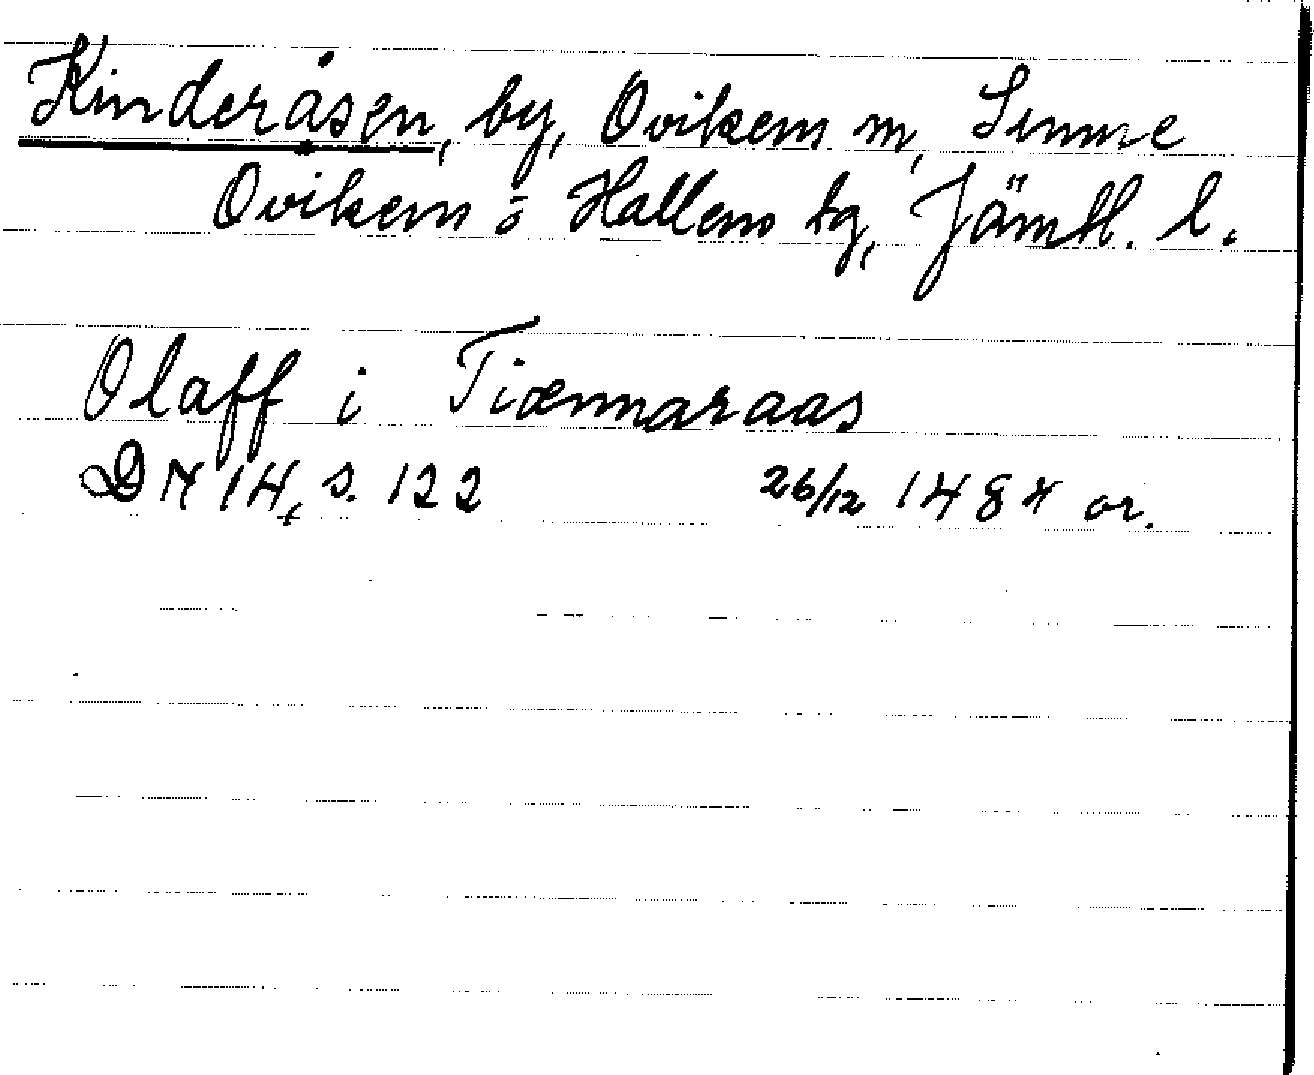 Kinderåsen, by, Ovikens m, Sunne
Ovikens o Hallens tg, Jämtl. l.
Olaff i Tiænnaraas
DN 14, s. 122 26/12 1484 or.